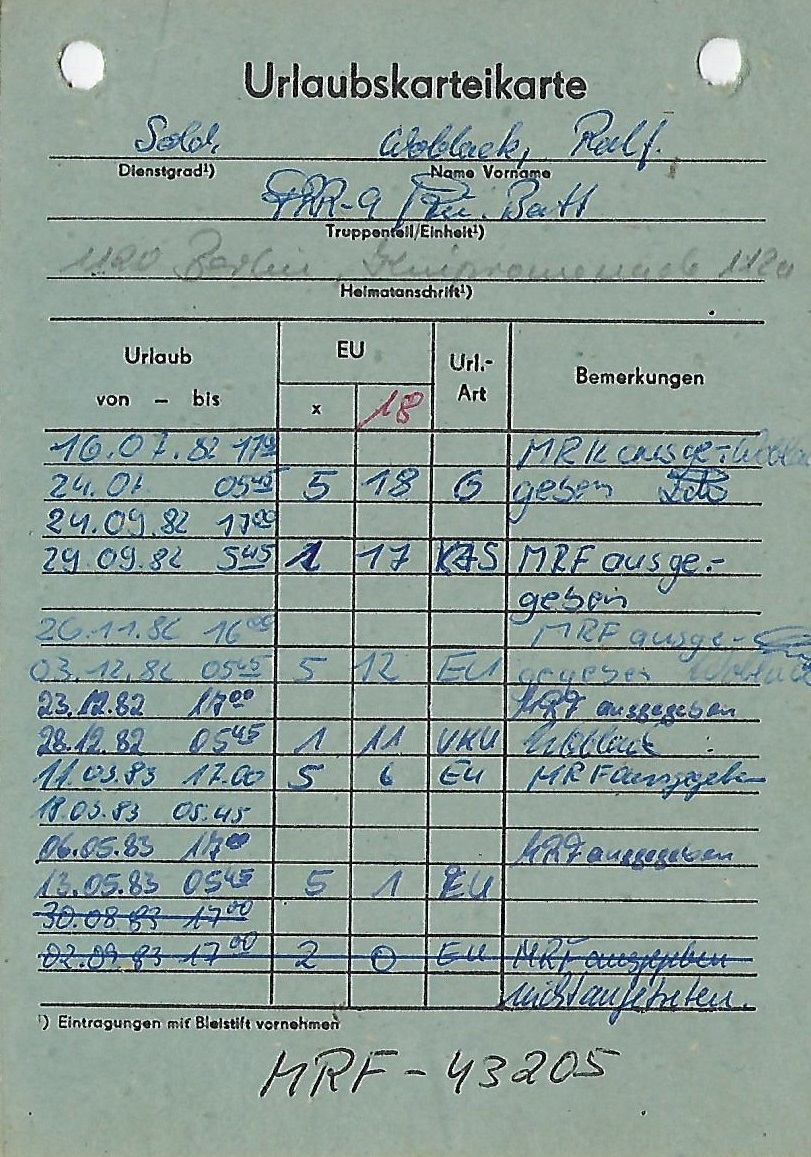 Urlaubskarteikarte
Sold. Woblack, Ralf.
Dienstgrad¹) Name Vorname
Batt
Truppenteil/Einheit¹)
1120 Berlin, 112a
Heimatanschrift¹)
Urlaub EU Url.- Bemerkungen
von – bis x 18 Art
16.07.82 17⁰⁰ MRK ausge-
24.07 05⁴⁵ 5 18 geben
24.09.82 17⁰⁰
29.09.82 5⁴⁵ 1 17 MRF ausge-
geben
26.11.82 16⁰⁰ MRF ausge-
03.12.82 05⁴⁵ 5 12 EU gegeben
23.12.82 17⁰⁰ MRF ausgegeben
28.12.82 05⁴⁵ 1 11 VKU Woblack
11.03.83 17.00 5 6 EU MRF ausgegeben
18.03.83 05.45
06.05.83 17⁰⁰ MRF ausgegeben
13.05.83 05⁴⁵ 5 1 EU
30.08.83 17⁰⁰
02.09.83 17⁰⁰ 2 0 EU MRF ausgegeben
nicht angetreten.
¹) Eintragungen mit Bleistift vornehmen
MRF-43205